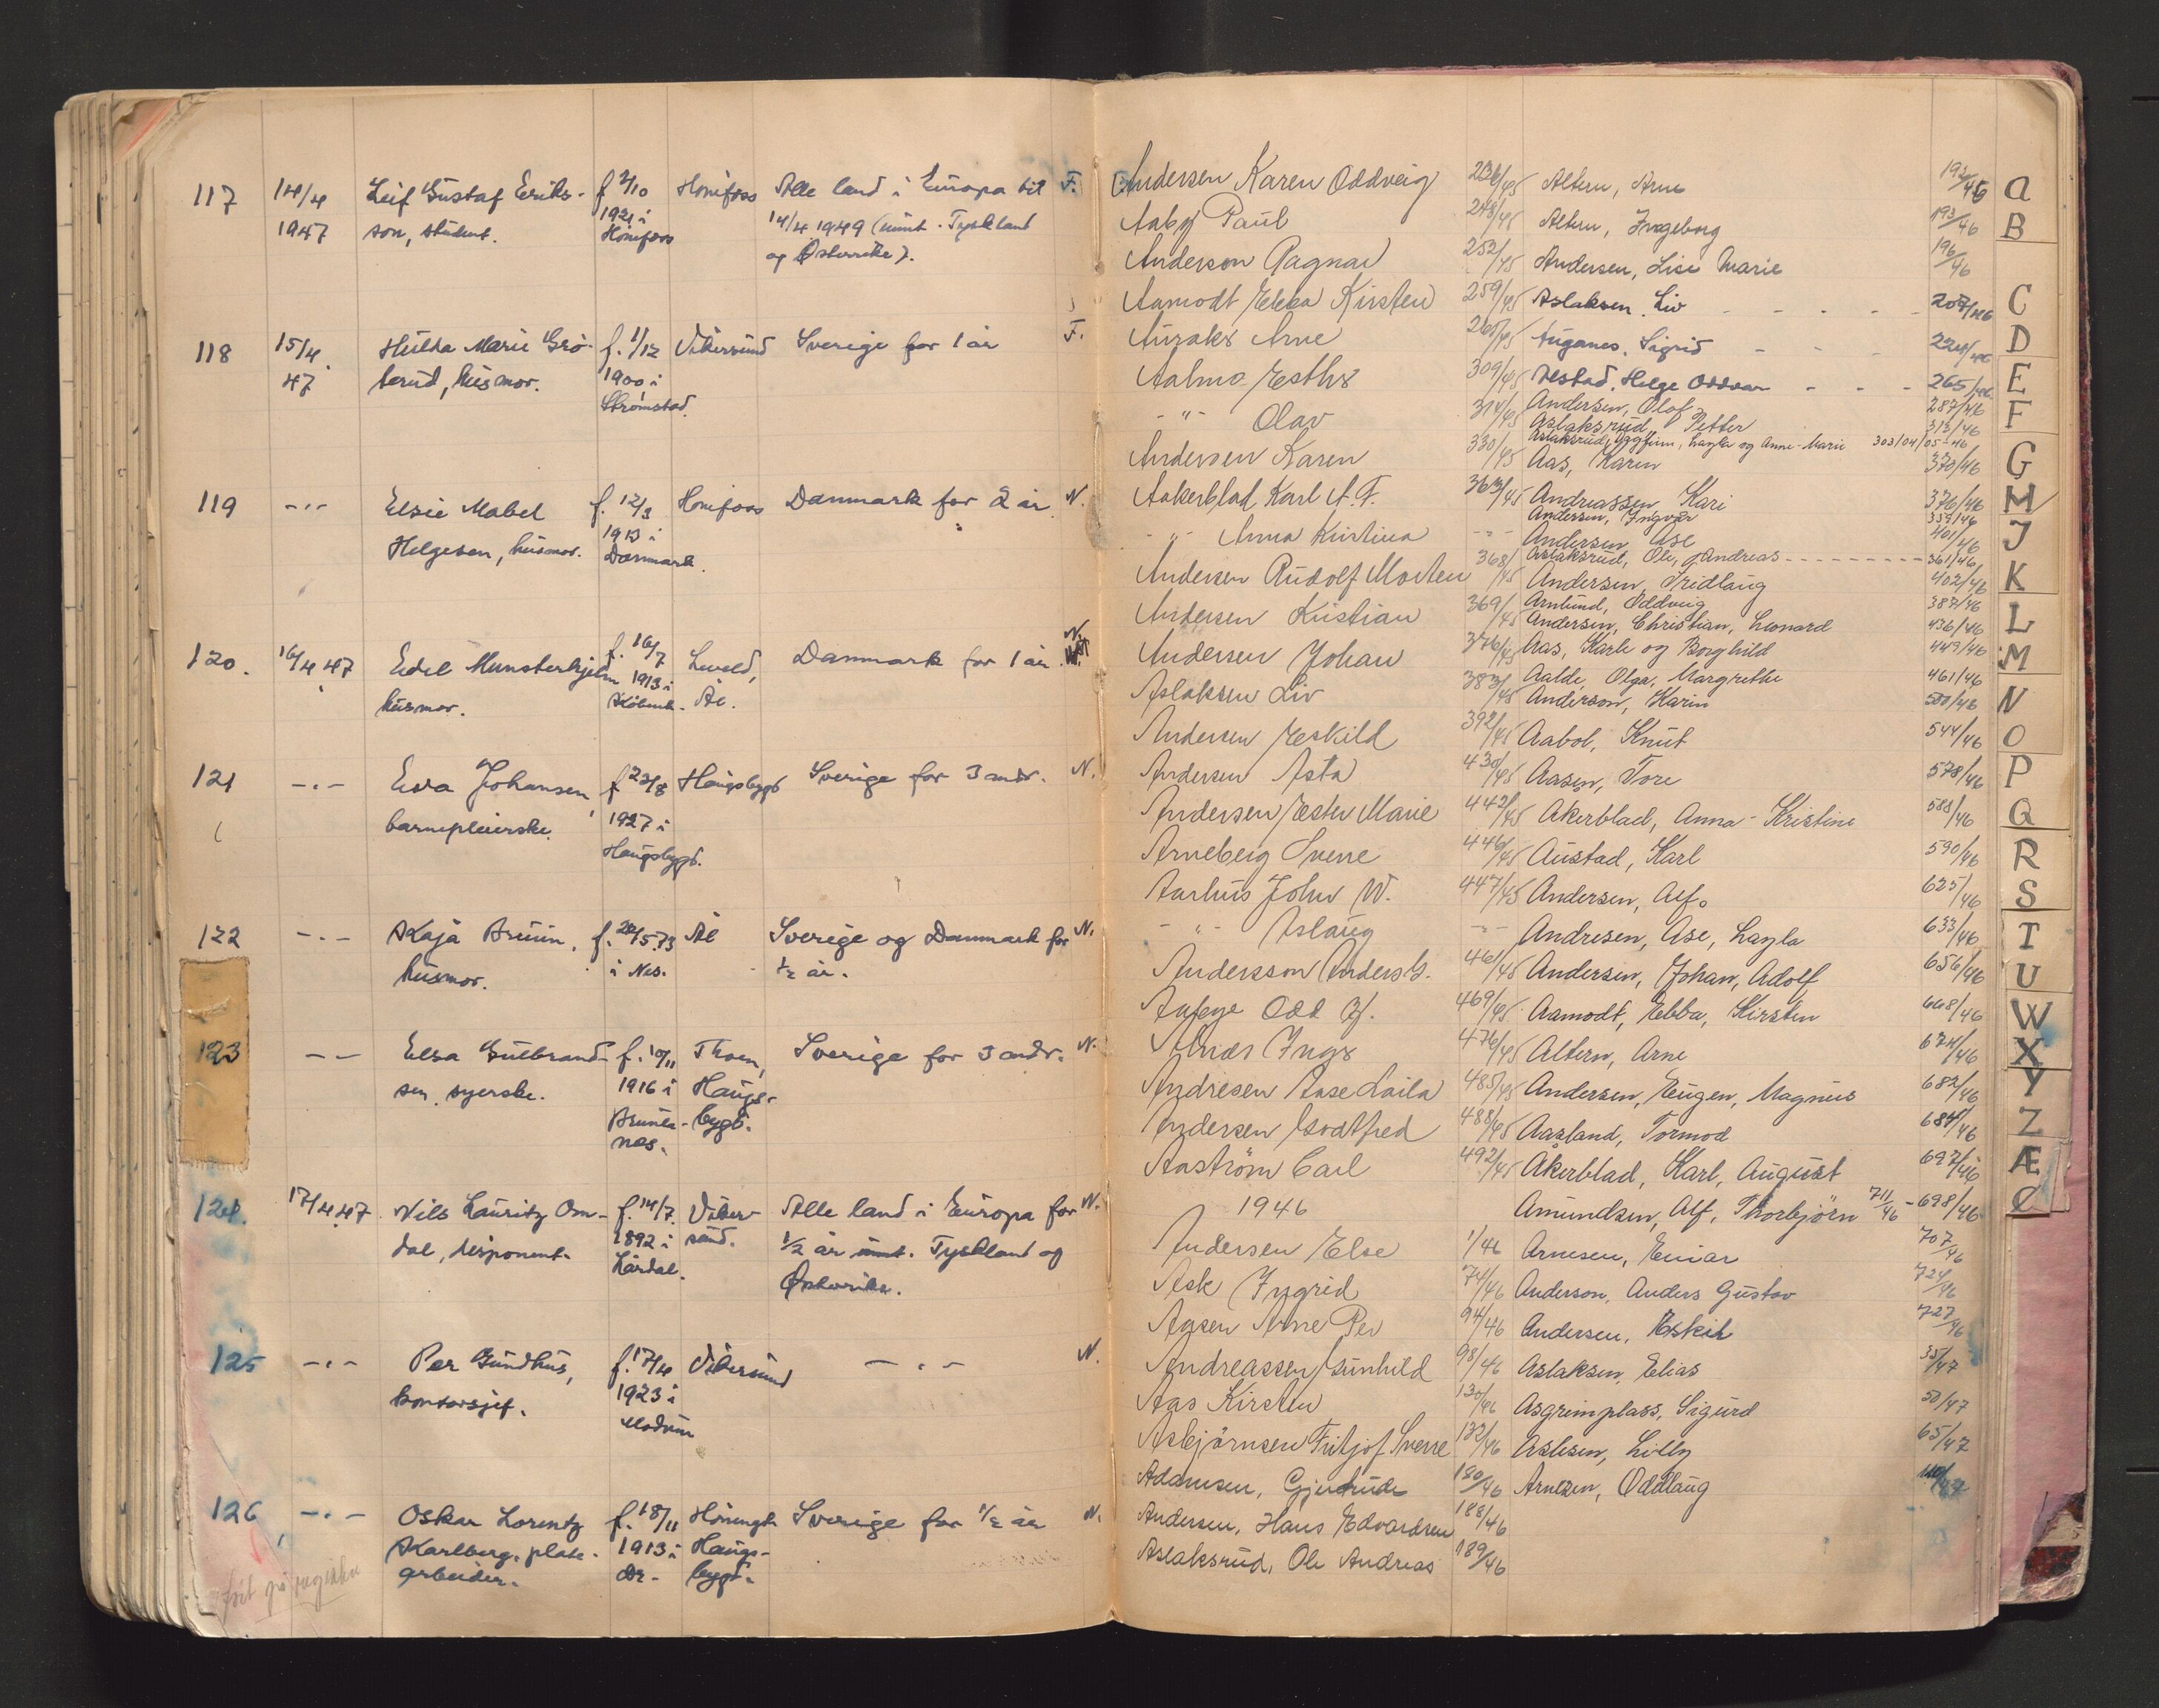 117 14/4 Leif Gustaf Eriks- f 2/10 Hönefoss Alle land i Europa til F.
1947 son, student. 1921 i 14/4 1949 (unnt. Tyskland
Hönefoss og Österrike).
118 15/4 Hulda Marie Grö- f. 1/12 Vikersund Sverige for 1 år F.
47 terud, husmor. 1900 i
Strömstad.
119 -"- Elsie Mabel f. 12/3 Hönefoss Danmark for 2 år N.
Helgesen, husmor. 1913 i
Danmark.
120. 16/4 47 Edel Munsterhjelm f. 16/7 Leveld, Danmark for 1 år N.
husmor. 1913 i Ål.
Köbenh.
121 -"- Eva Johansen, f 22/8 Haugsbygd Sverige for 3 mndr. N.
barnepleierske. 1927 i
Haugsbygd.
122 -"- Kaja Bruun, f. 20/5.73 Ål Sverige og Danmark for N.
husmor. i Nes. 1/2 år.
123 -"- Elsa Gulbrand- f. 10/11 Thoen, Sverige for 3 mndr. N.
sen, syerske. 1916 i Haugs-
bygd.
nes.
124. 17/4.47 Nils Lauritz Om- f. 14/7 Viker- Alle land i Europa for N.
dal, disponent. 1892 i sund. 1/2 år unnt. Tyskland og
Lårdal. Österrike.
125 -"- Per Gundhus, f. 17/4 Vikersund -"- N.
kontorsjef. 1923 i
Modum
126 -"- Oskar Lorentz f. 18/11 Sverige for 1/2 år N.
Karlberg, plate- 1913 i Haugs-
arbeider. Dr. bygd.
Andersen Karen Oddveig 236/45 Altern, Arne 192/46 A
Aaby Paul 248/45 Altern, Ingeborg 193/46 B
Anderson Ragnar 252/45 Andersen, Lise Marie 196/46
Aamodt Ebba Kirsten 259/45 Aslaksen, Liv - - - - - 207/46 C
Arne 265/45 Auganes, Sigrid - - - 224/46 D
Aalmo Esther 309/45 Aestad, Helge Oddvar - - - 265/46 E
-"- Olav 314/45 Andersen, Olof 287/46 F
Aslaksrud, Petter 312/46
Aslaksrud, Dagfinn, Layla og Anne-Marie 303/04/05-46
Andersen Karen 330/45 Aas, Karen 370/46 G
Aakerblad Karl A. F. 363/45 Andreassen Kari 376/46 H
Andersen, Ingvar 359/46
-"- Anna Kristina -"- Andersen Åse 401/46 J
Aslaksrud, Ole, Andreas - - - - - 361/46
Andersen Rudolf Morten 368/45 Andersen, Fridlaug 402/46 K
Arnlund, Oddveig 387/46
Andersen Kristian 369/45 Andersen, Christian, Leonard 436/46 L
Andersen Johan 376/45 Aas, Karle og Borghild 449/46 M
Aslaksen Liv 383/45 Aalde Olga, Margrethe 461/46
Anderson, Karin 500/46 N
Andersen Eskild 392/45 Aabol, Knut 544/46 O
Andersen Asta 430/45 Aasen, Tore 578/46 P
Andersen Ester Marie 442/45 Åkerblad, Anna-Kristine 588/46 Q
Arneberg Sverre 446/45 Austad, Karl 590/46 R
Aarhus John W. 447/45 Andersen, Alf. 625/46 S
-"- Aslaug -"- Andresen, Åse, Layla 633/46 T
Andersson Anders G. 461/45 Andersen, Johan, Adolf 656/46 U
Odd 469/45 Aamodt, Ebba, Kirsten 668/46 W
Inger 476/45 Altern, Arne 674/46 X
Andresen Aase Laila 485/45 Andersen, Eugen, Magnus 682/46 Y
Andersen Godtfred 488/45 Aasland, Tormod 684/46 Z
Aaström Carl 492/45 Åkerblad, Karl, August 697/46 Æ
1946 Amundsen, Alf, Thorbjörn 711/46 - 698/46 Ø
Andersen Else 1/46 Arnesen, Einar 707/46
Ask Ingrid 74/46 Anderson, Anders Gustav 724/46
Aasen Arne Per 94/46 Andersen, Eskil 727/46
Andreassen Gunhild 98/46 Aslaksen, Elias 35/47
Aas Kirsten 130/46 Asgrimplass, Sigurd 50/47
Asbjörnsen Fritjof Sverre 132/46 Aslesen, Lilly 65/47
Adamsen, Gjertrude 180/46 Arnezen, Oddlaug
Andersen, Hans Edvardsen 188/46
Aslaksrud, Ole Andreas 189/46